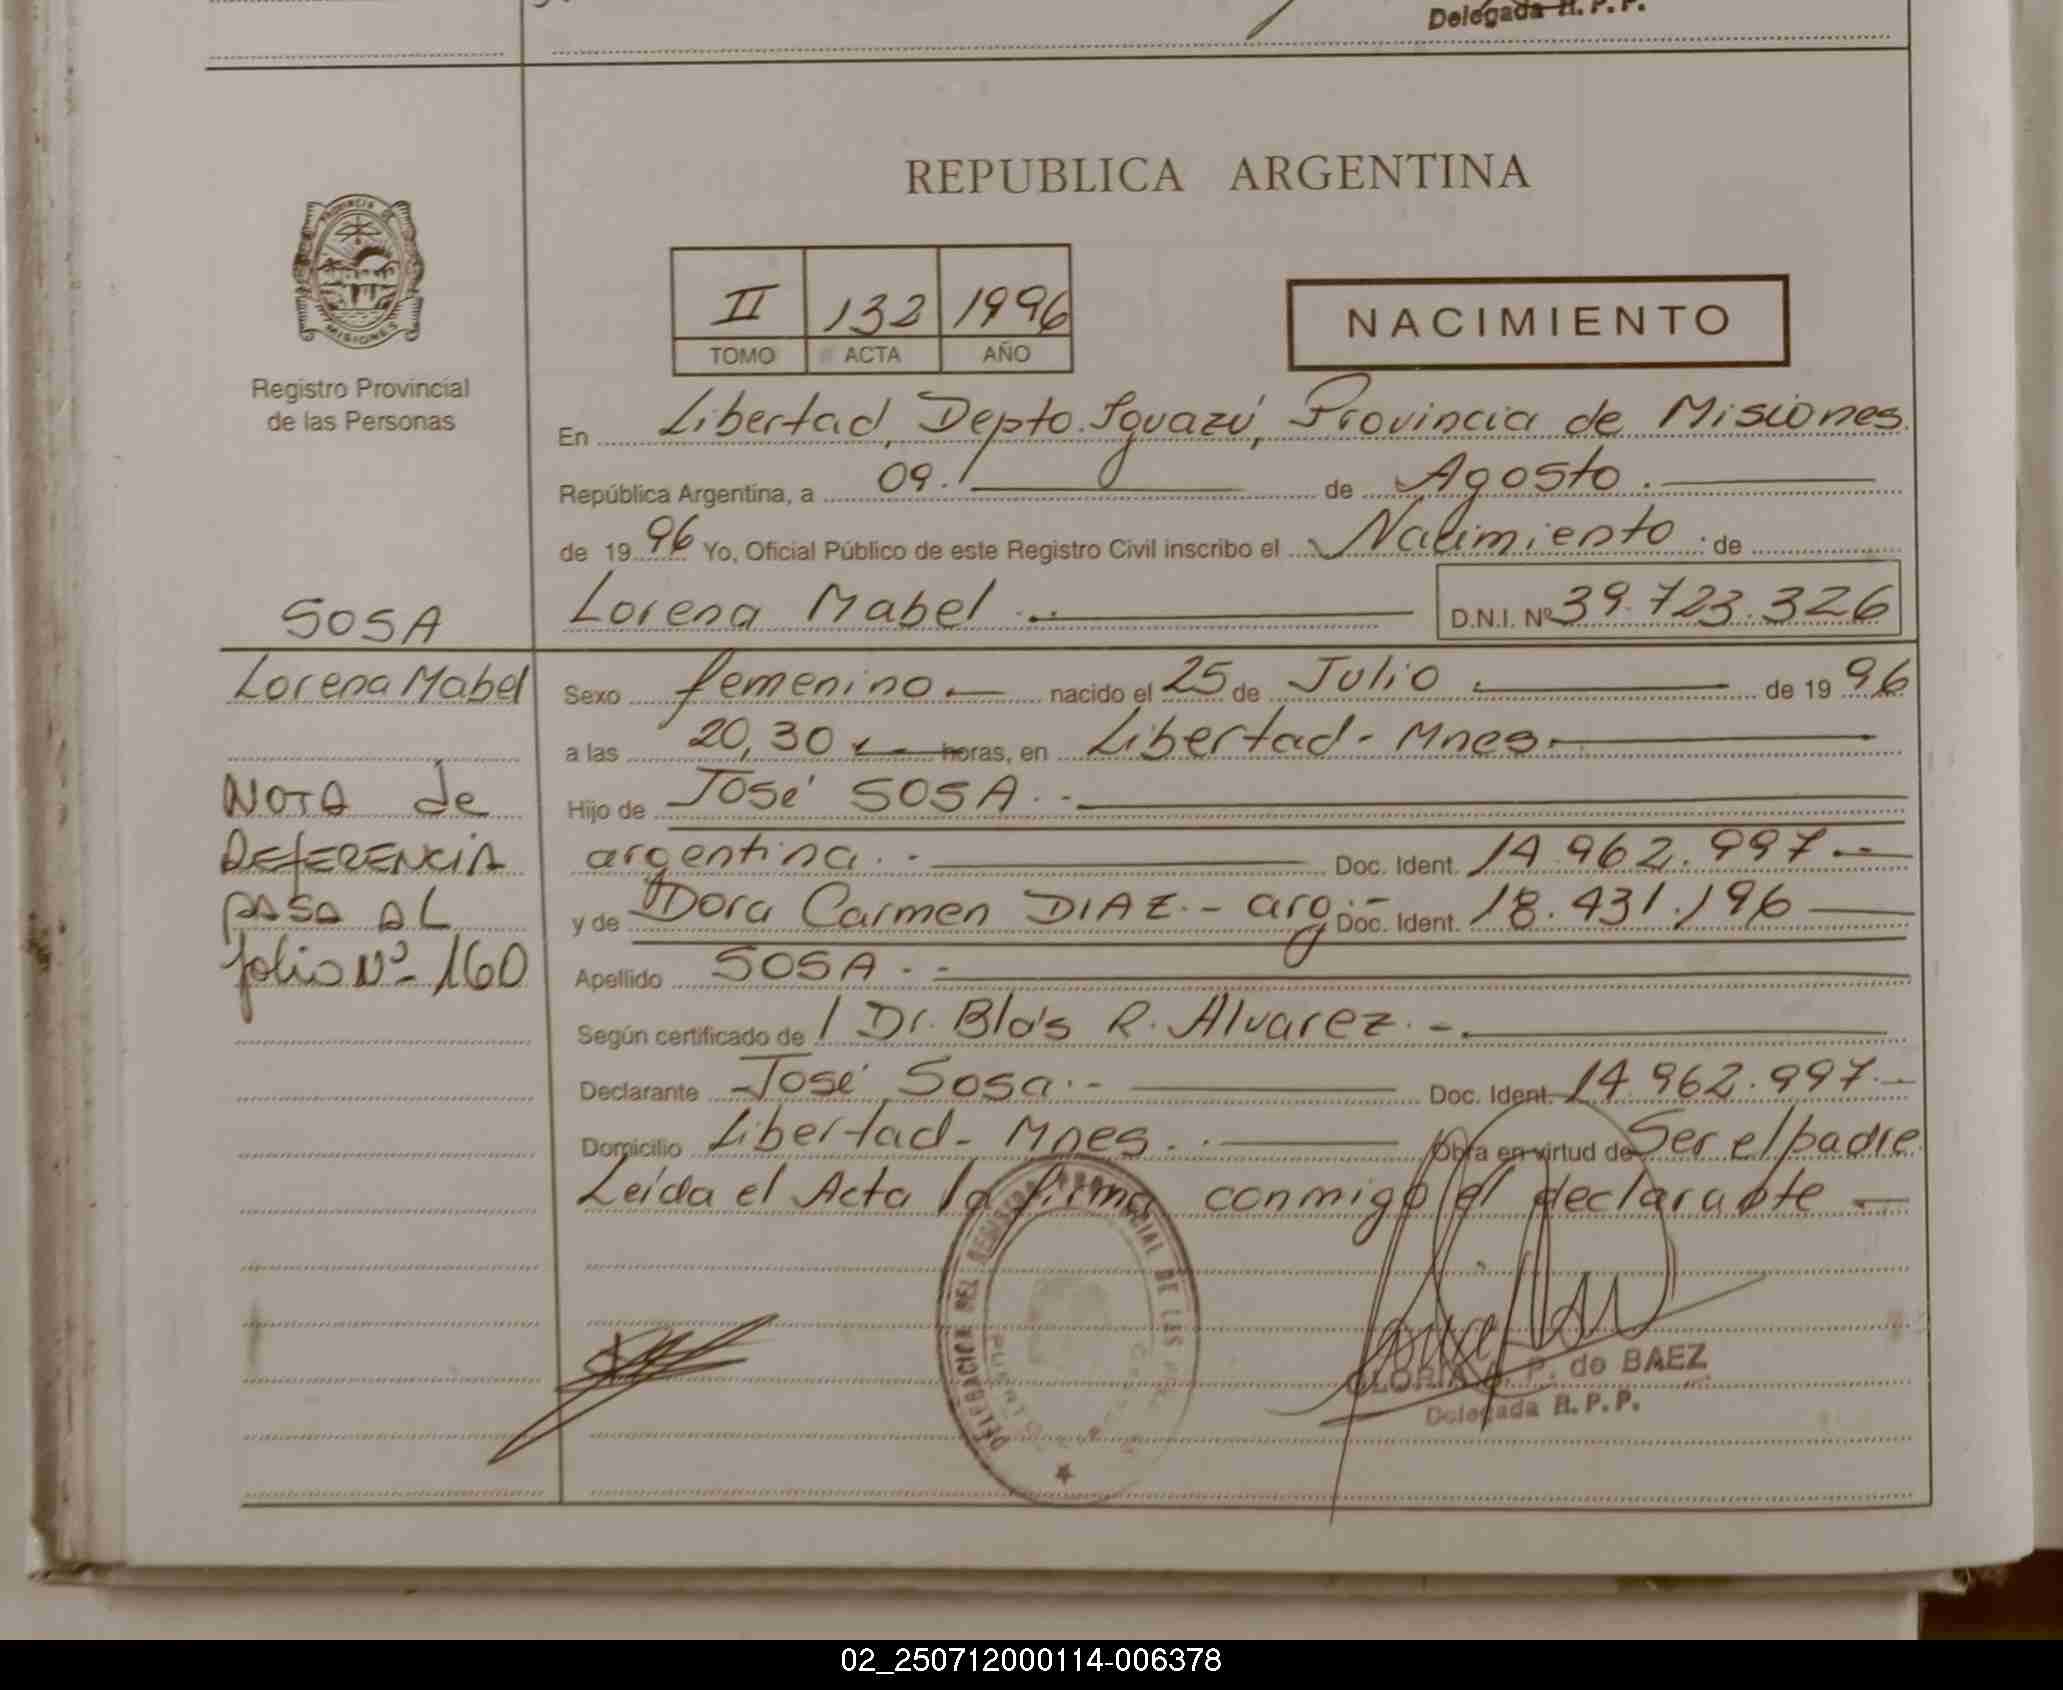 Delegada R.P.P.
PROVINCIA DE
MISIONES
Registro Provincial
de las Personas
REPUBLICA ARGENTINA
II 132 1996
TOMO ACTA AÑO
NACIMIENTO
En Libertad, Depto. Iguazú, Provincia de Misiones.
República Argentina, a 09. de Agosto.
de 1996 Yo, Oficial Público de este Registro Civil inscribo el Nacimiento de
Lorena Mabel D.N.I. Nº 39.723.326
SOSA
Lorena Mabel
Sexo femenino.- nacido el 25 de Julio de 1996
a las 20,30 horas, en Libertad - Mnes.
Hijo de José SOSA. -
argentina. - Doc. Ident. 14.962.997.-
y de Dora Carmen DIAZ.- arg.- Doc. Ident. 18.431.196
Apellido SOSA. -
Según certificado de / Dr. Blas R. Alvarez. -.
Declarante José Sosa.- Doc. Ident. 14.962.997.-
Domicilio Libertad - Mnes. Obra en virtud de Ser el padre.
Leída el Acta la firma conmigo el declarante -
NOTA de
REFERENCIA
PASA AL
folio Nº- 160
DELEGACION DEL REGISTRO PROVINCIAL DE LAS
GLORIA P. de BAEZ
Delegada R.P.P.
02_250712000114-006378